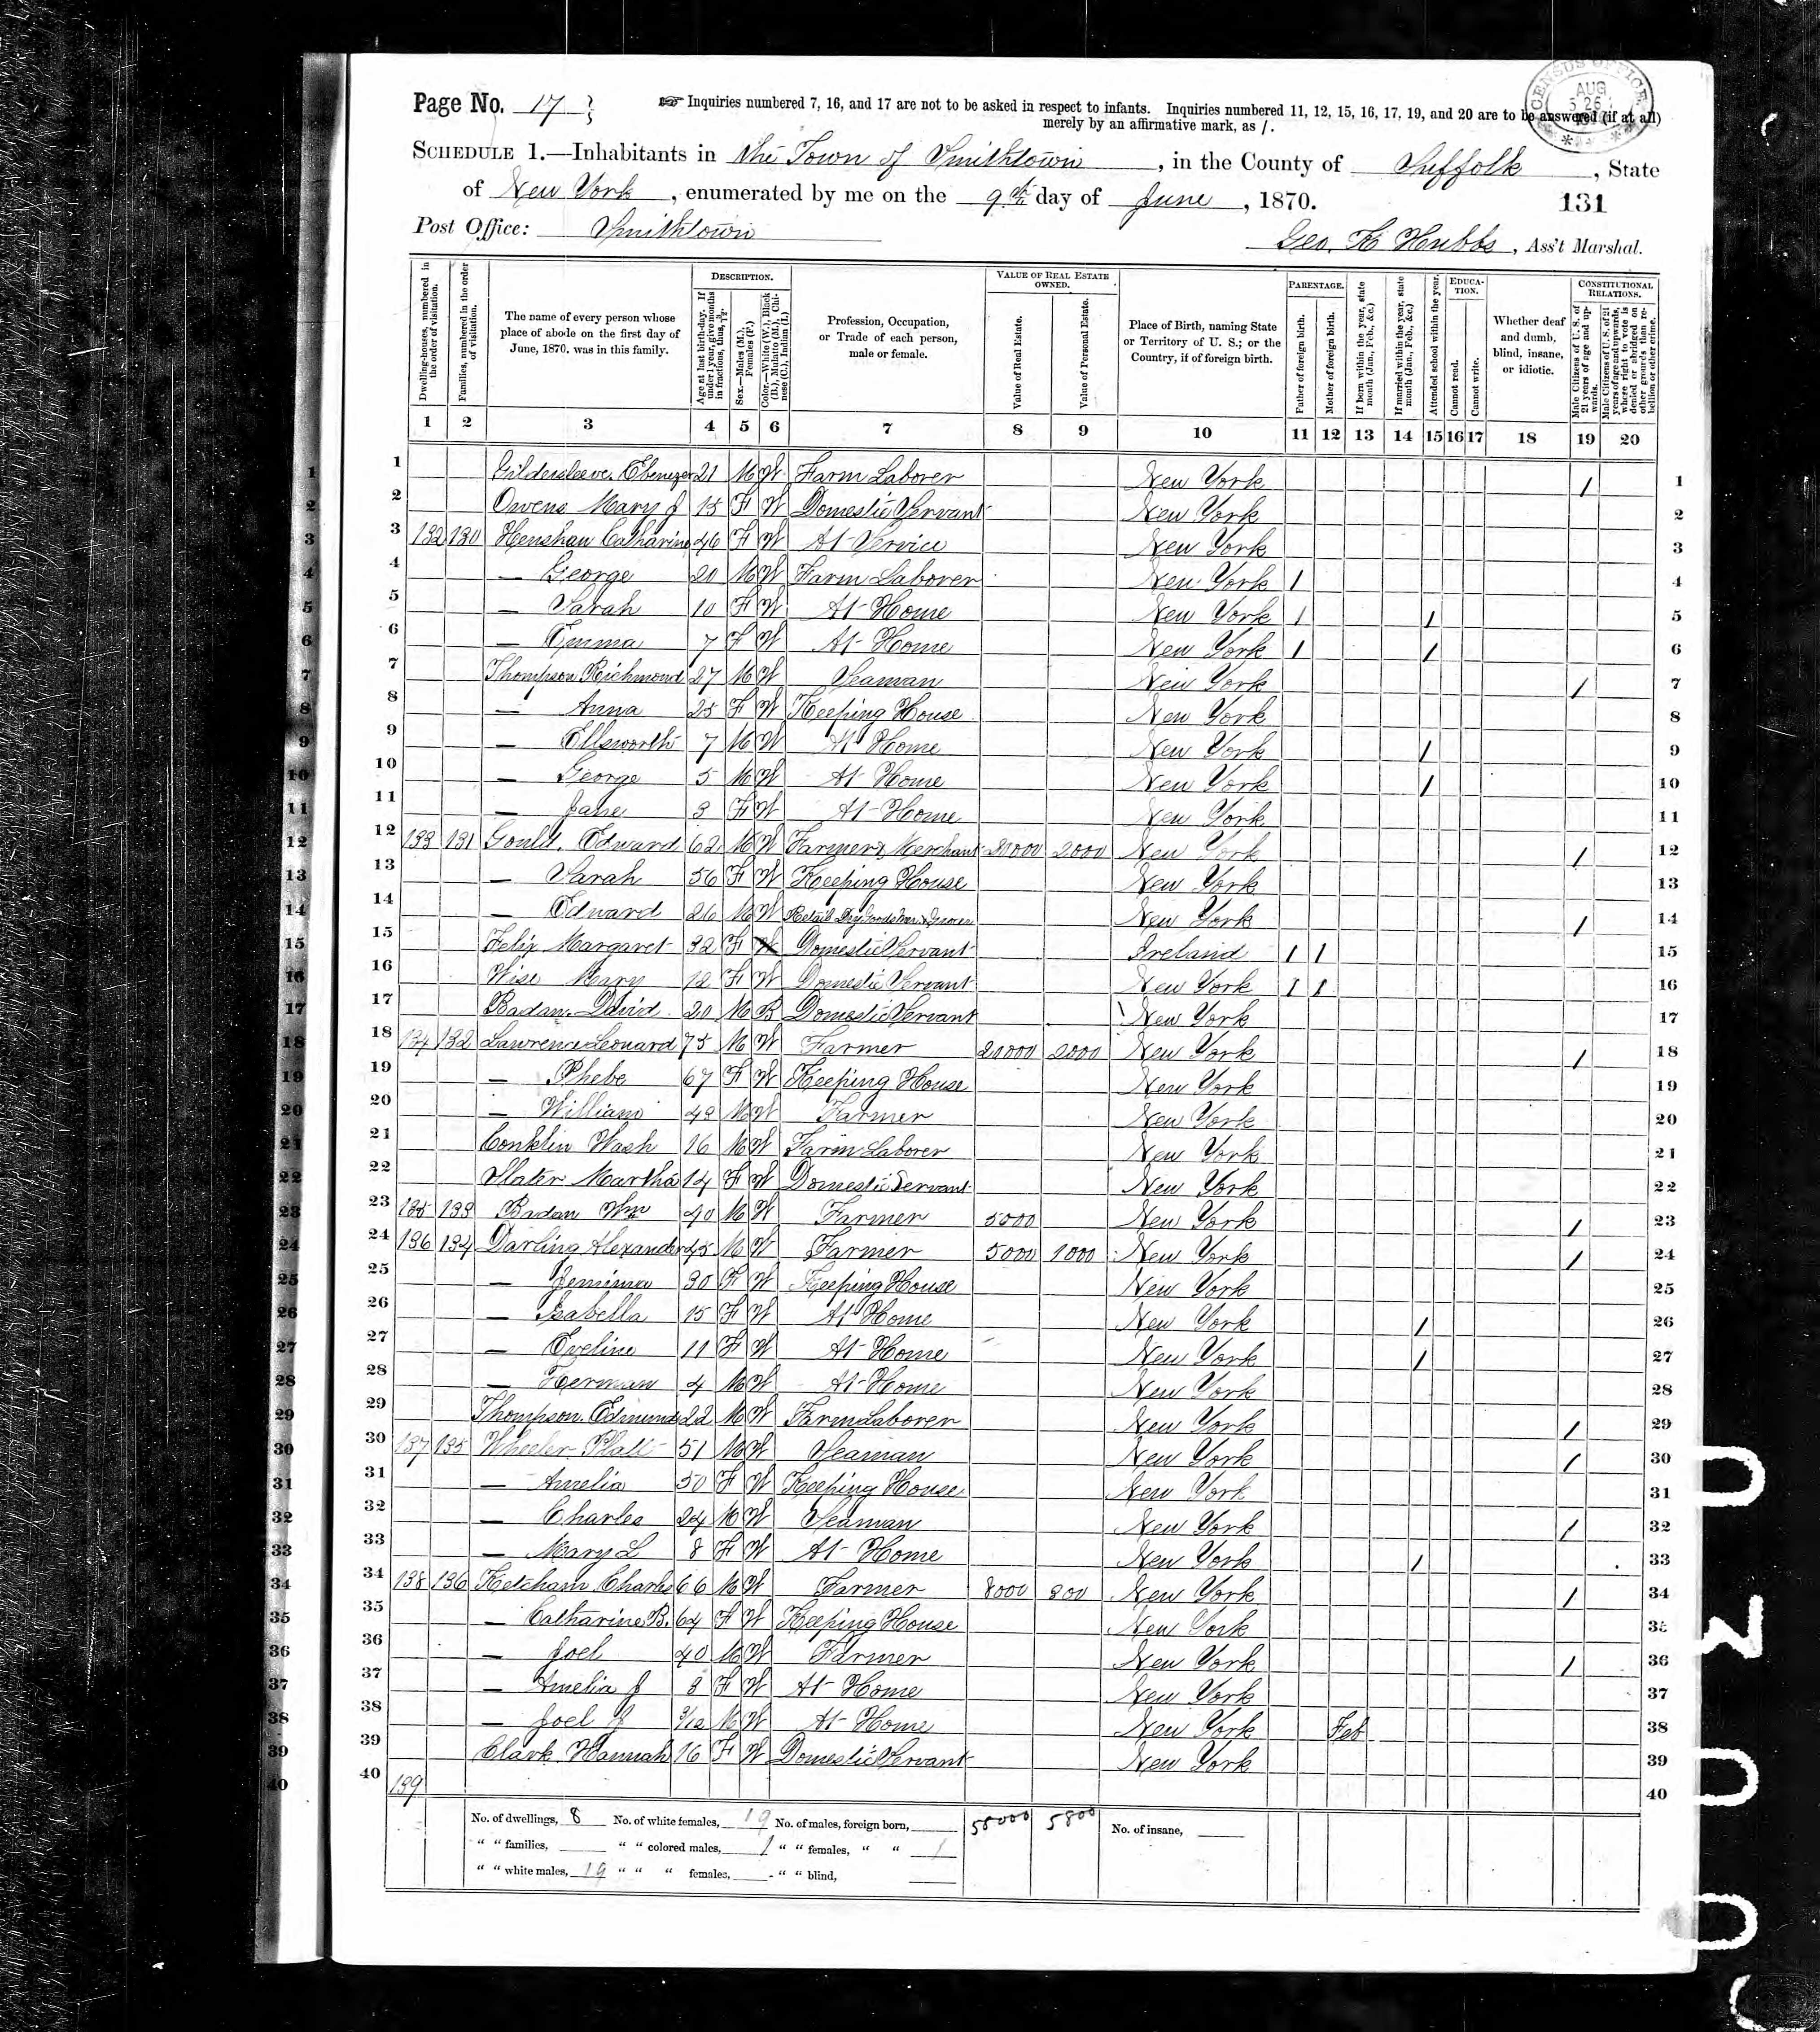 Page No. 17
☞ Inquiries numbered 7, 16, and 17 are not to be asked in respect to infants. Inquiries numbered 11, 12, 15, 16, 17, 19, and 20 are to be answered (if at all)
merely by an affirmative mark, as /.
CENSUS OFFICE AUG
SCHEDULE 1.—Inhabitants in The Town of Smithtown, in the County of Suffolk, State
of New York, enumerated by me on the 9th day of June, 1870.
131
Post Office: Smithtown
Geo. K Hubbs, Ass't Marshal.
Dwelling-houses, numbered in the order of visitation.
Families, numbered in the order of visitation.
The name of every person whose place of abode on the first day of June, 1870, was in this family.
DESCRIPTION.
Age at last birth-day. If under 1 year, give months in fractions, thus, 3/12.
Sex.—Males (M.), Females (F.)
Color.—White (W.), Black (B.), Mulatto (M.), Chinese (C.), Indian (I.)
Profession, Occupation, or Trade of each person, male or female.
VALUE OF REAL ESTATE OWNED.
Value of Real Estate.
Value of Personal Estate.
Place of Birth, naming State or Territory of U. S.; or the Country, if of foreign birth.
PARENTAGE.
Father of foreign birth.
Mother of foreign birth.
If born within the year, state month (Jan., Feb., &c.)
If married within the year, state month (Jan., Feb., &c.)
Attended school within the year.
EDUCATION.
Cannot read.
Cannot write.
Whether deaf and dumb, blind, insane, or idiotic.
CONSTITUTIONAL RELATIONS.
Male Citizens of U. S. of 21 years of age and upwards.
Male Citizens of U. S. of 21 years of age and upwards, where right to vote is denied or abridged on other grounds than rebellion or other crime.
1 2 3 4 5 6 7 8 9 10 11 12 13 14 15 16 17 18 19 20
1 Gildersleeve Ebenezer 21 M W Farm Laborer New York / 1
2 Owens Mary J 15 F W Domestic Servant New York 2
3 132 130 Henshaw Catharine 46 F W At Service New York 3
4 — George 20 M W Farm Laborer New York / 4
5 — Sarah 10 F W At Home New York / / 5
6 — Emma 7 F W At Home New York / / 6
7 Thompson Richmond 27 M W Seaman New York / 7
8 — Anna 25 F W Keeping House New York 8
9 — Ellsworth 7 M W At Home New York / 9
10 — George 5 M W At Home New York / 10
11 — Jane 3 F W At Home New York 11
12 133 131 Gould, Edward 62 M W Farmer & Merchant 20000 2000 New York / 12
13 — Sarah 56 F W Keeping House New York 13
14 — Edward 26 M W Retail Dry Goods New York / 14
15 Felix Margaret 32 F W Domestic Servant Ireland / / 15
16 Wise Mary 12 F W Domestic Servant New York / / 16
17 Badan David 20 M B Domestic Servant New York 17
18 134 132 Lawrence Leonard 75 M W Farmer 20000 2000 New York / 18
19 — Phebe 67 F W Keeping House New York 19
20 — William 49 M W Farmer New York 20
21 Conklin Wash 16 M W Farm Laborer New York 21
22 Slater Martha 14 F W Domestic Servant New York 22
23 135 133 Badan Wm 40 M W Farmer 5000 New York / 23
24 136 134 Darling Alexander 45 M W Farmer 5000 1000 New York / 24
25 — Jemima 30 F W Keeping House New York 25
26 — Isabella 15 F W At Home New York / 26
27 — Eveline 11 F W At Home New York / 27
28 — Herman 4 M W At Home New York 28
29 Thompson Edmund 22 M W Farm Laborer New York / 29
30 137 135 Wheeler Platt 51 M W Seaman New York / 30
31 — Amelia 50 F W Keeping House New York 31
32 — Charles 24 M W Seaman New York / 32
33 — Mary L 8 F W At Home New York / 33
34 138 136 Ketcham Charles 66 M W Farmer 8000 800 New York / 34
35 — Catharine B. 64 F W Keeping House New York 35
36 — Joel 40 M W Farmer New York / 36
37 — Amelia J 8 F W At Home New York 37
38 — Joel J 3/12 M W At Home New York Feb 38
39 Clark Hannah 16 F W Domestic Servant New York 39
40 139 40
No. of dwellings, 8 No. of white females, 19 No. of males, foreign born, 58000 5800 No. of insane,
" " families, " " colored males, 1 " " females, " " 1
" " white males, 19 " " " females, - " " blind,